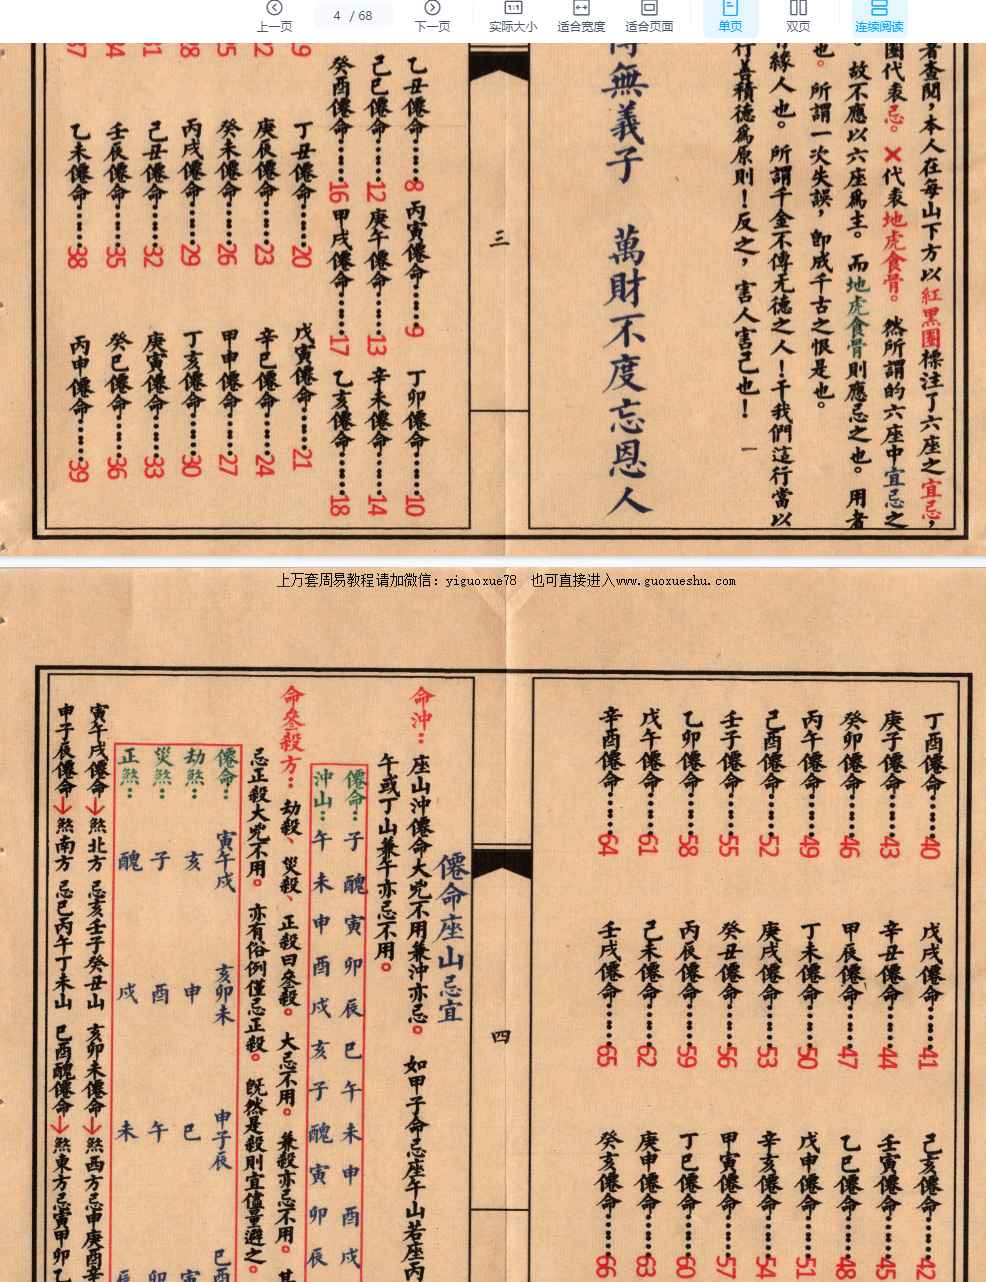 上一页
4 / 68
下一页
实际大小
适合宽度
适合页面
单页
双页
连续阅读
者查閱，本人在每山下方以紅黑圈標注了六座之宜忌，
圈代表忌。✕代表地虎食骨。然所謂的六座中宜忌之
。故不應以六座爲主。而地虎食骨則應忌之也。用者
也。所謂一次失誤，卽成千古之恨是也。
緣人也。所謂千金不傳无德之人！干我們這行當以
行善積德爲原則！反之，害人害己也！
一
無義子 萬財不度忘恩人
三
乙丑僊命……8 丙寅僊命……9 丁卯僊命……10
己巳僊命……12 庚午僊命……13 辛未僊命……14
癸酉僊命……16 甲戌僊命……17 乙亥僊命……18
19
丁丑僊命……20 戊寅僊命……21
22
庚辰僊命……23 辛巳僊命……24
25
癸未僊命……26 甲申僊命……27
28
丙戌僊命……29 丁亥僊命……30
31
己丑僊命……32 庚寅僊命……33
34
壬辰僊命……35 癸巳僊命……36
37
乙未僊命……38 丙申僊命……39
上万套周易教程请加微信：yiguoxue78 也可直接进入www.guoxueshu.com
丁酉僊命……40 戊戌僊命……41 己亥僊命……42
庚子僊命……43 辛丑僊命……44 壬寅僊命……45
癸卯僊命……46 甲辰僊命……47 乙巳僊命……48
丙午僊命……49 丁未僊命……50 戊申僊命……51
己酉僊命……52 庚戌僊命……53 辛亥僊命……54
壬子僊命……55 癸丑僊命……56 甲寅僊命……57
乙卯僊命……58 丙辰僊命……59 丁巳僊命……60
戊午僊命……61 己未僊命……62 庚申僊命……63
辛酉僊命……64 壬戌僊命……65 癸亥僊命……66
四
僊命座山忌宜
命沖：座山沖僊命大兇不用兼沖亦忌。如甲子命忌座午山若座丙
午或丁山兼午亦忌不用。
僊命：子醜寅卯辰巳午未申酉戌
沖山：午未申酉戌亥子醜寅卯辰
命叄殺方：劫殺、災殺、正殺曰叄殺。大忌不用。兼殺亦忌不用。其
忌正殺大兇不用。亦有俗例僅忌正殺。既然是殺則宜儘量避之。
僊命：寅午戌 亥卯未 申子辰 巳酉
劫煞：亥 申 巳 寅
災煞：子 酉 午 卯
正煞：醜 戌 未 辰
寅午戌僊命→煞北方 忌亥壬子癸丑山 亥卯未僊命→煞西方忌申庚酉辛
申子辰僊命→煞南方 忌巳丙午丁未山 巳酉醜僊命→煞東方忌寅甲卯乙